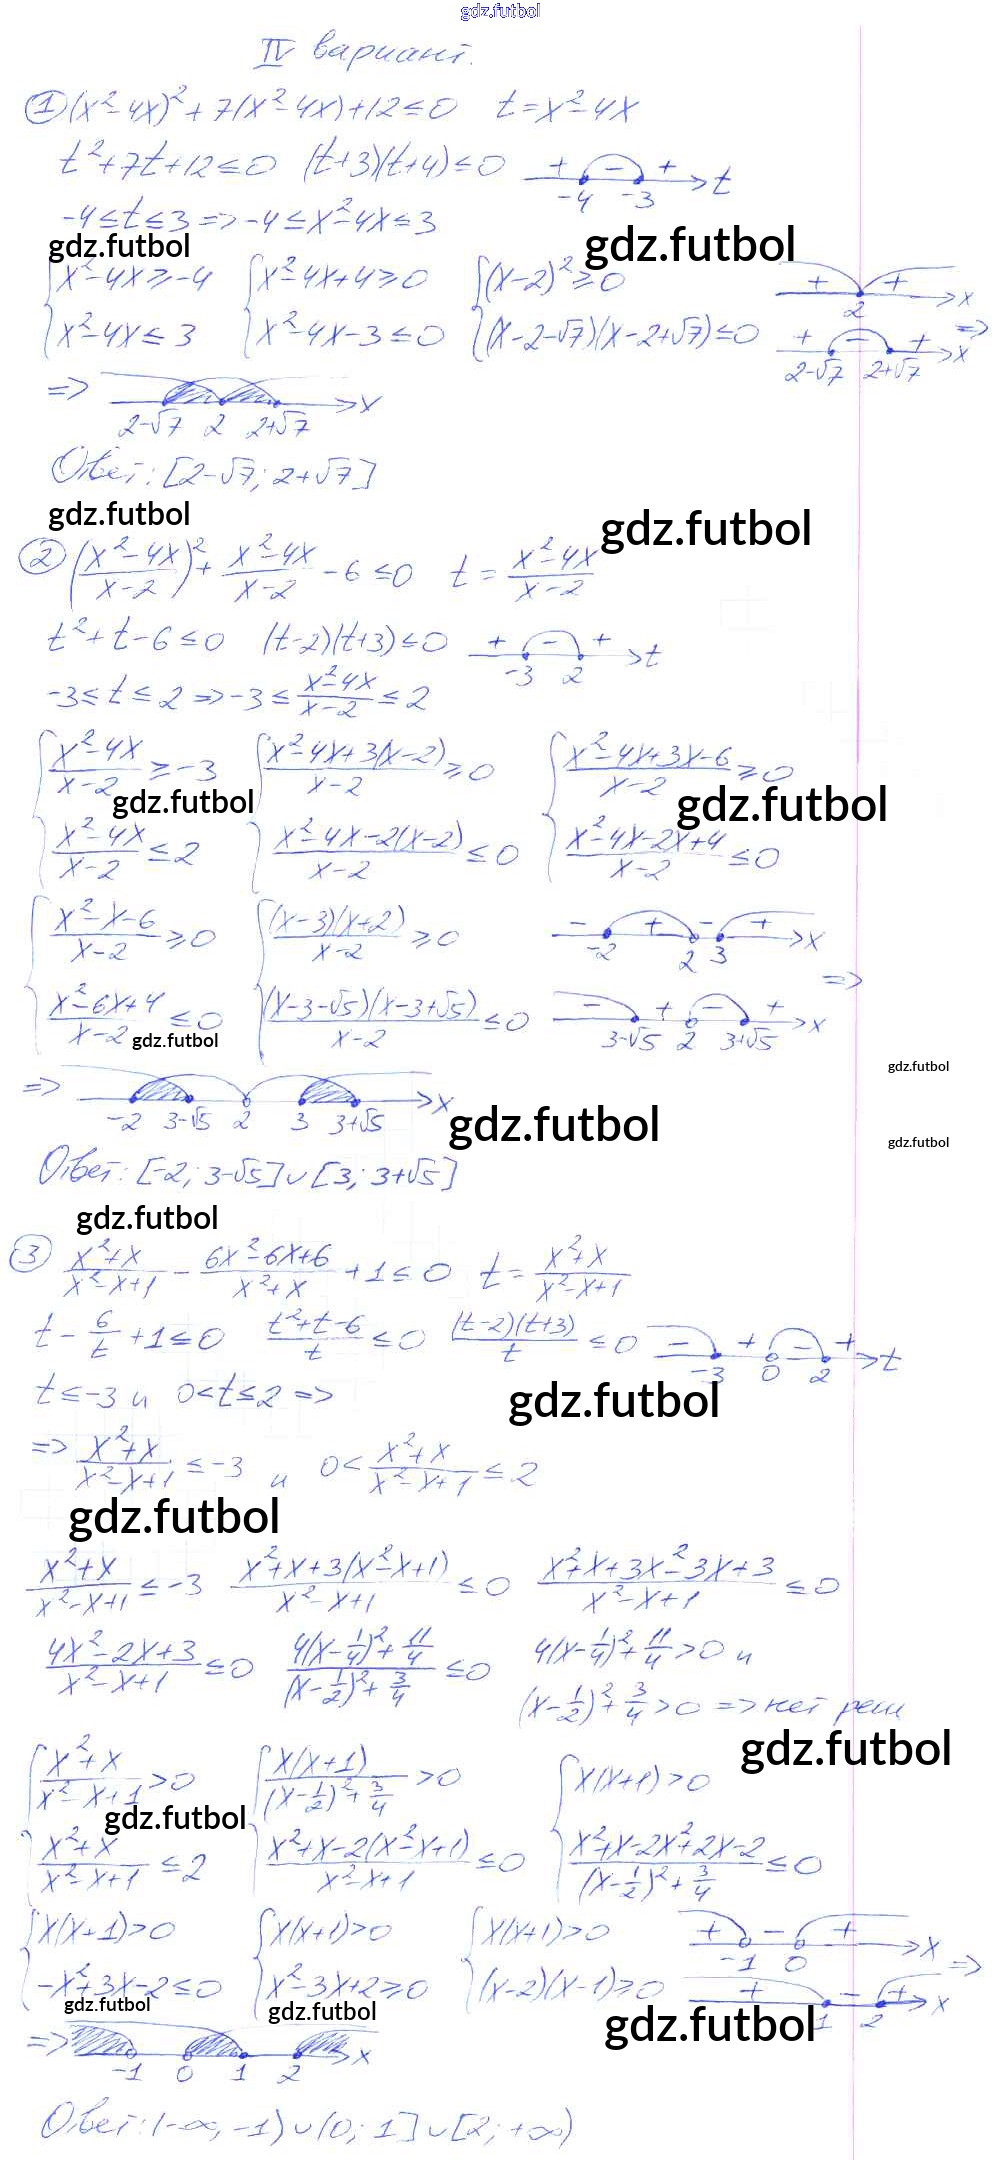 gdz.futbol
IV вариант.
① (x²-4x)²+7(x²-4x)+12≤0 t=x²-4x
t²+7t+12≤0 (t+3)(t+4)≤0 + - + -4 -3 t
-4≤t≤3=>-4≤x²-4x≤3
gdz.futbol gdz.futbol
{x²-4x≥-4 {x²-4x+4≥0 {(x-2)²≥0 + + 2 x
{x²-4x≤3 {x²-4x-3≤0 {(x-2-√7)(x-2+√7)≤0 + - + 2-√7 2+√7 x =>
=> 2-√7 2 2+√7 x
Ответ: [2-√7; 2+√7]
gdz.futbol gdz.futbol
② ((x²-4x)/(x-2))²+(x²-4x)/(x-2)-6≤0 t=(x²-4x)/(x-2)
t²+t-6≤0 (t-2)(t+3)≤0 + - + -3 2 t
-3≤t≤2=>-3≤(x²-4x)/(x-2)≤2
{(x²-4x)/(x-2)≥-3 {(x²-4x+3(x-2))/(x-2)≥0 {(x²-4x+3x-6)/(x-2)≥0
gdz.futbol gdz.futbol
{(x²-4x)/(x-2)≤2 {(x²-4x-2(x-2))/(x-2)≤0 {(x²-4x-2x+4)/(x-2)≤0
{(x²-x-6)/(x-2)≥0 {((x-3)(x+2))/(x-2)≥0 - + - + -2 2 3 x =>
{(x²-6x+4)/(x-2)≤0 {((x-3-√5)(x-3+√5))/(x-2)≤0 - + - + 3-√5 2 3+√5 x
gdz.futbol
gdz.futbol
=> -2 3-√5 2 3 3+√5 x
gdz.futbol
gdz.futbol
Ответ: [-2; 3-√5]∪[3; 3+√5]
gdz.futbol
③ (x²+x)/(x²-x+1)-(6x²-6x+6)/(x²+x)+1≤0 t=(x²+x)/(x²-x+1)
t-6/t+1≤0 (t²+t-6)/t≤0 ((t-2)(t+3))/t≤0 - + - + -3 0 2 t
t≤-3 и 0<t≤2=>
gdz.futbol
=>(x²+x)/(x²-x+1)≤-3 и 0<(x²+x)/(x²-x+1)≤2
gdz.futbol
(x²+x)/(x²-x+1)≤-3 (x²+x+3(x²-x+1))/(x²-x+1)≤0 (x²+x+3x²-3x+3)/(x²-x+1)≤0
(4x²-2x+3)/(x²-x+1)≤0 (4(x-1/4)²+11/4)/((x-1/2)²+3/4)≤0 4(x-1/4)²+11/4>0 и
(x-1/2)²+3/4>0=>нет реш
gdz.futbol
{(x²+x)/(x²-x+1)>0 {(x(x+1))/((x-1/2)²+3/4)>0 {x(x+1)>0
gdz.futbol
{(x²+x)/(x²-x+1)≤2 {(x²+x-2(x²-x+1))/(x²-x+1)≤0 {(x²+x-2x²+2x-2)/((x-1/2)²+3/4)≤0
{x(x+1)>0 {x(x+1)>0 {x(x+1)>0 + - + -1 0 x =>
{-x²+3x-2≤0 {x²-3x+2≥0 {(x-2)(x-1)≥0 + - + 1 2 x
gdz.futbol gdz.futbol gdz.futbol
=> -1 0 1 2 x
Ответ: (-∞,-1)∪(0; 1]∪[2; +∞)